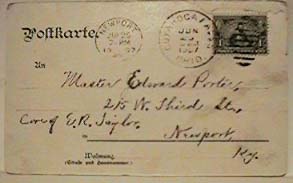 Postkarte
NEWPORT
CUYAHOGA FALLS
JUN
1907
OHIO
1
An
Master Edward Porter
215 W. Third St.
Care of E.R. Taylor
Newport
Ky.
Wohnung
(Straße und Hausnummer)